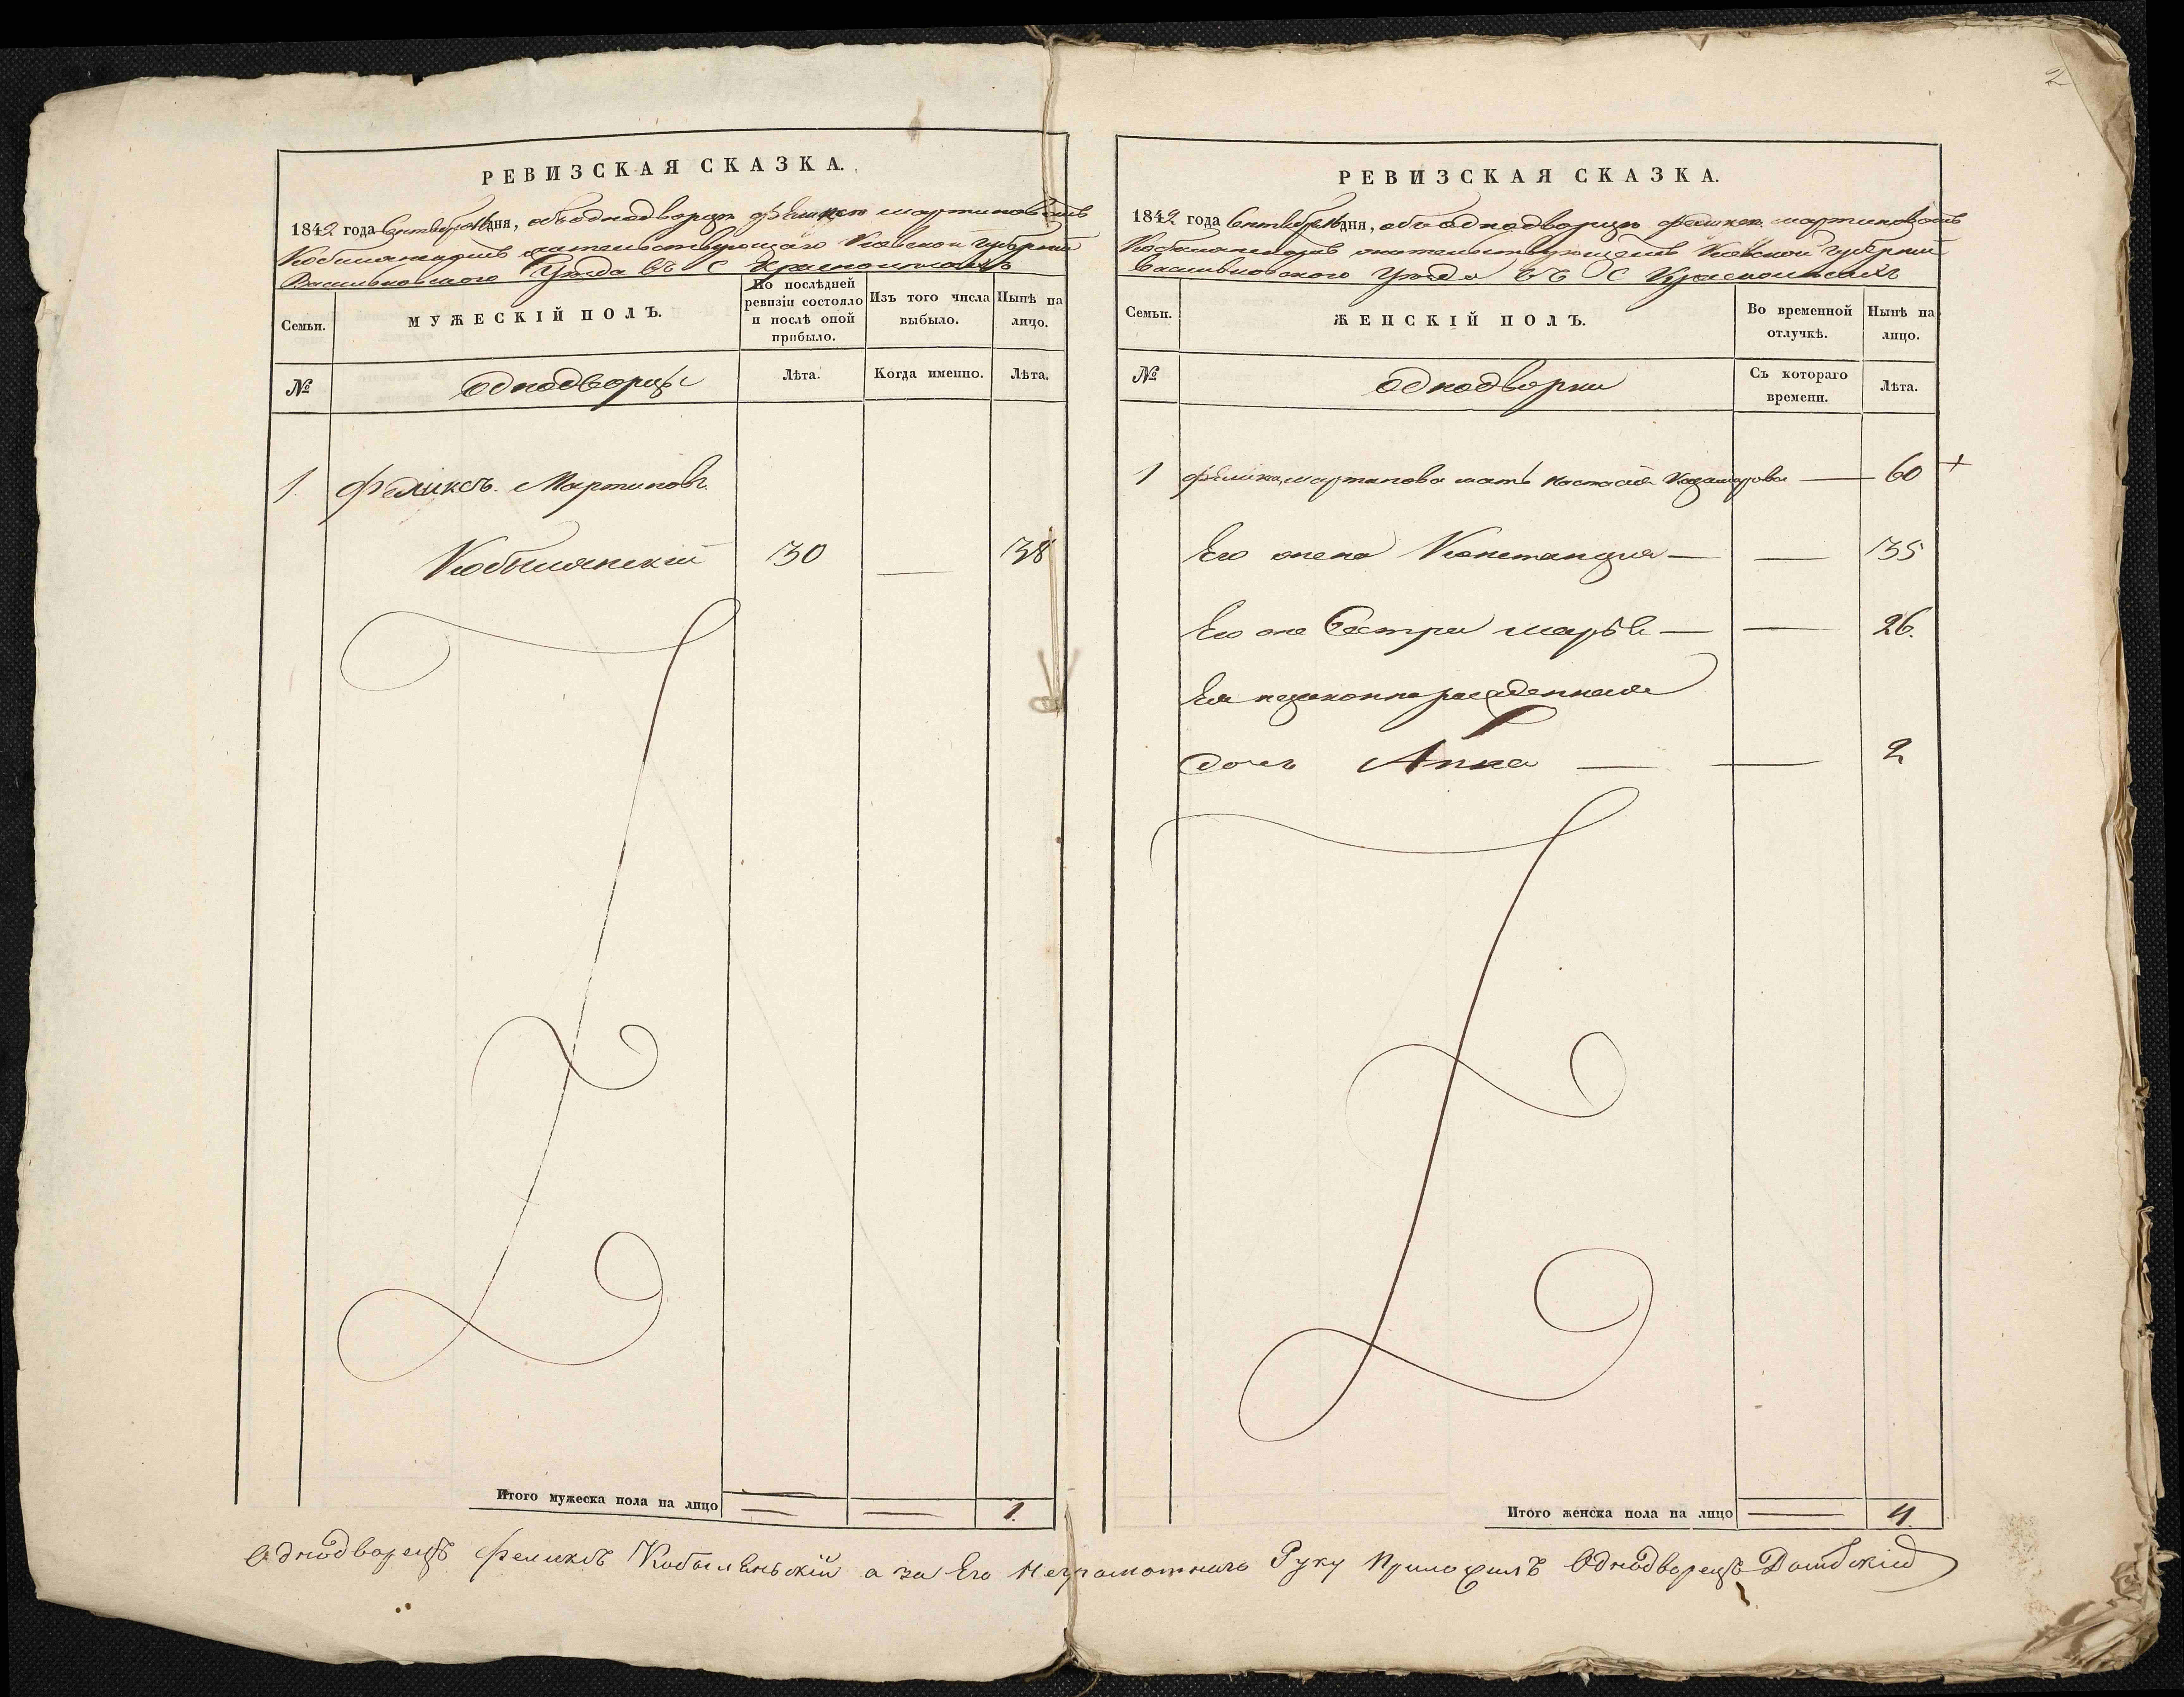 2
РЕВИЗСКАЯ СКАЗКА.
1842 года Сентября дня, объ однодворцѣ Феликсѣ Мартиновомъ
Кобилянскомъ жительствующаго Кіевской Губерніи
Васильковского Уѣзда въ С
Семьи.
МУЖЕСКІЙ ПОЛЪ.
По послѣдней ревизіи состояло и послѣ оной прибыло.
Изъ того числа выбыло.
Нынѣ на лицо.
№
однодворцы
Лѣта.
Когда именно.
Лѣта.
1. Феликсъ Мартиновъ
Кобилянскій 30 — 38
Итого мужеска пола на лицо — — 1.
РЕВИЗСКАЯ СКАЗКА.
1842 года Сентября дня, объ однодворцѣ Феликсѣ Мартиновомъ
Кобилянскомъ жительствующемъ Кіевской Губерніи
Васильковского Уѣзда въ С
Семьи.
ЖЕНСКІЙ ПОЛЪ.
Во временной отлучкѣ.
Нынѣ на лицо.
№
однодворки
Съ котораго времени.
Лѣта.
1 Феликса Мартинова мать Настасія Казимирова — 60 +
Его жена Констанція — — 35
Его же Сестра Марія — — 26.
Ея незаконнорожденная
дочь Анна — — 2
Итого женска пола на лицо — 4.
Однодворецъ Феликсъ Кобыленьскій а за Его Неграмотнаго Руку Приложилъ Однодворецъ Домбскій